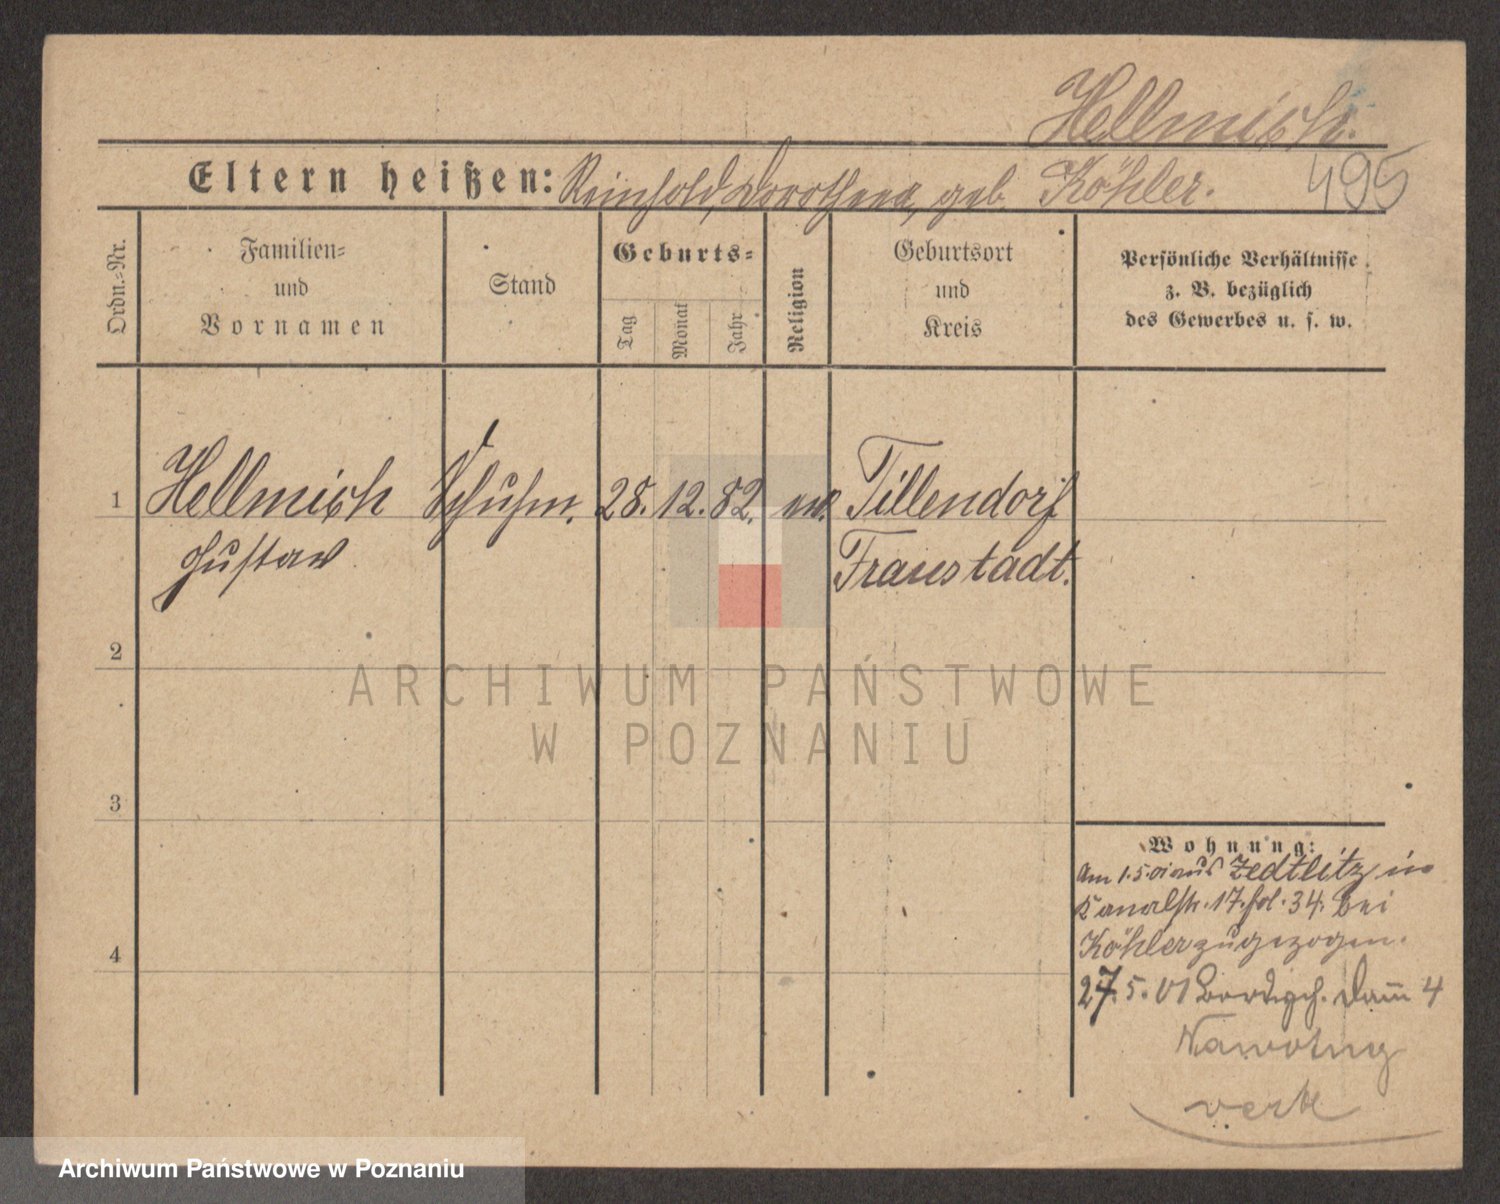 Hellmich.
Eltern heißen: Reinhold, Dorothea, geb. Köhler. 495
Ordn.-Nr.
Familien-
und
Vornamen
Stand
Geburts-
Tag
Monat
Jahr
Religion
Geburtsort
und
Kreis
Persönliche Verhältnisse
z. B. bezüglich
des Gewerbes u. s. w.
1 Hellmich Schuhm. 28. 12. 82. Tillendorf
Gustav Fraustadt.
2
3
4
Wohnung:
Am 1.5.01 aus Zedtlitz in
Kanalstr. 17. fol. 34. bei
Köhler zugezogen.
27.5.01 Damm 4
Nawotny
ARCHIWUM PAŃSTWOWE
W POZNANIU
Archiwum Państwowe w Poznaniu